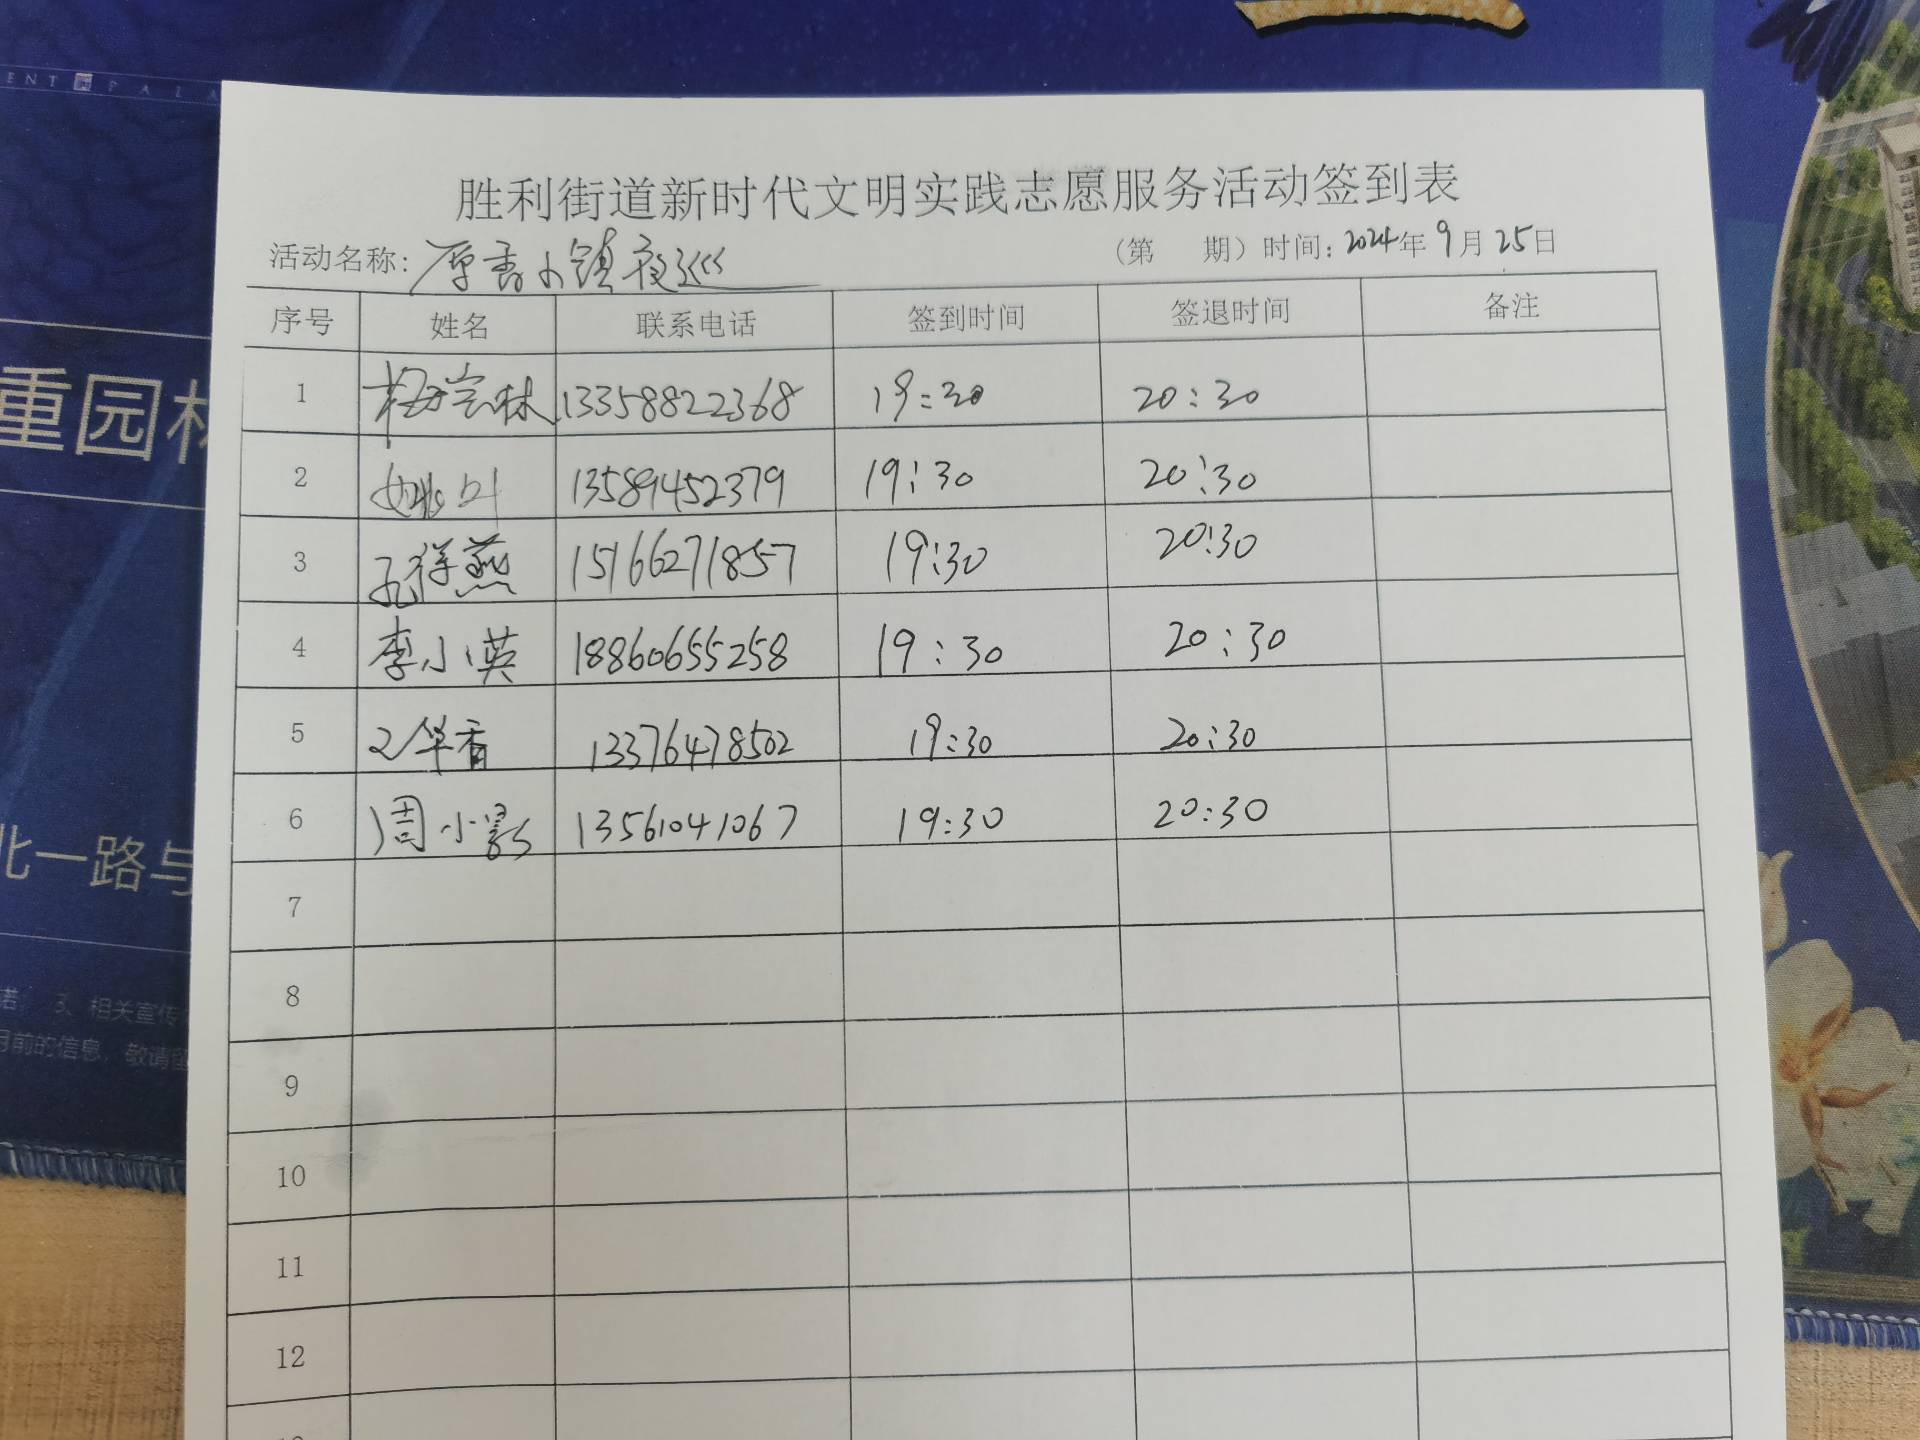 ENT PALA
胜利街道新时代文明实践志愿服务活动签到表
活动名称: 原香小镇夜巡 (第 期) 时间: 2024年9月25日
序号 姓名 联系电话 签到时间 签退时间 备注
1 梅宗林 13358822368 19:30 20:30
2 姚 13589452379 19:30 20:30
3 孔祥燕 15166271857 19:30 20:30
4 李小英 18860655258 19:30 20:30
5 华香 13376478502 19:30 20:30
6 周小影 13561041067 19:30 20:30
7
8
9
10
11
12
重园林
北一路与
诺; 3、相关宣传
月前的信息,敬请留